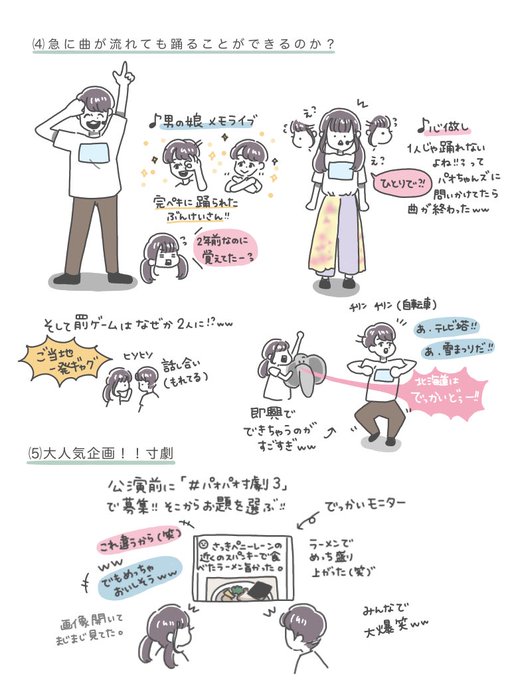 ⑷急に曲が流れても踊ることができるのか？
♪男の娘メモライブ
完ペキに踊られた
ぶんけいさん!!
2年前なのに
覚えてたー？
え？
え？
ひとりで?!
♪心做し
1人じゃ踊れない
よね!!？って
パオちゃんズに
問いかけてたら
曲が終わったww
そして罰ゲームはなぜか2人に!?ww
ご当地
一発ギャグ
ヒソヒソ
話し合い
(もれてる)
チリン チリン(自転車)
あ、テレビ塔!!
あ、雪まつりだ!!
北海道は
でっかいどぅー!!
即興で
できちゃうのが
すごすぎww
⑸大人気企画！！寸劇
公演前に「#パオパオ寸劇3」
で募集!!そこからお題を選ぶ!!
これ違うから(笑)
ww
でもめっちゃ
おいしそうww
画像開いて
まじまじ見てた。
さっきペニーレーンの
近くのスパキーで食
べたラーメン旨かった。
でっかいモニター
ラーメンで
めっち盛り
上がった(笑)
みんなで
大爆笑ww